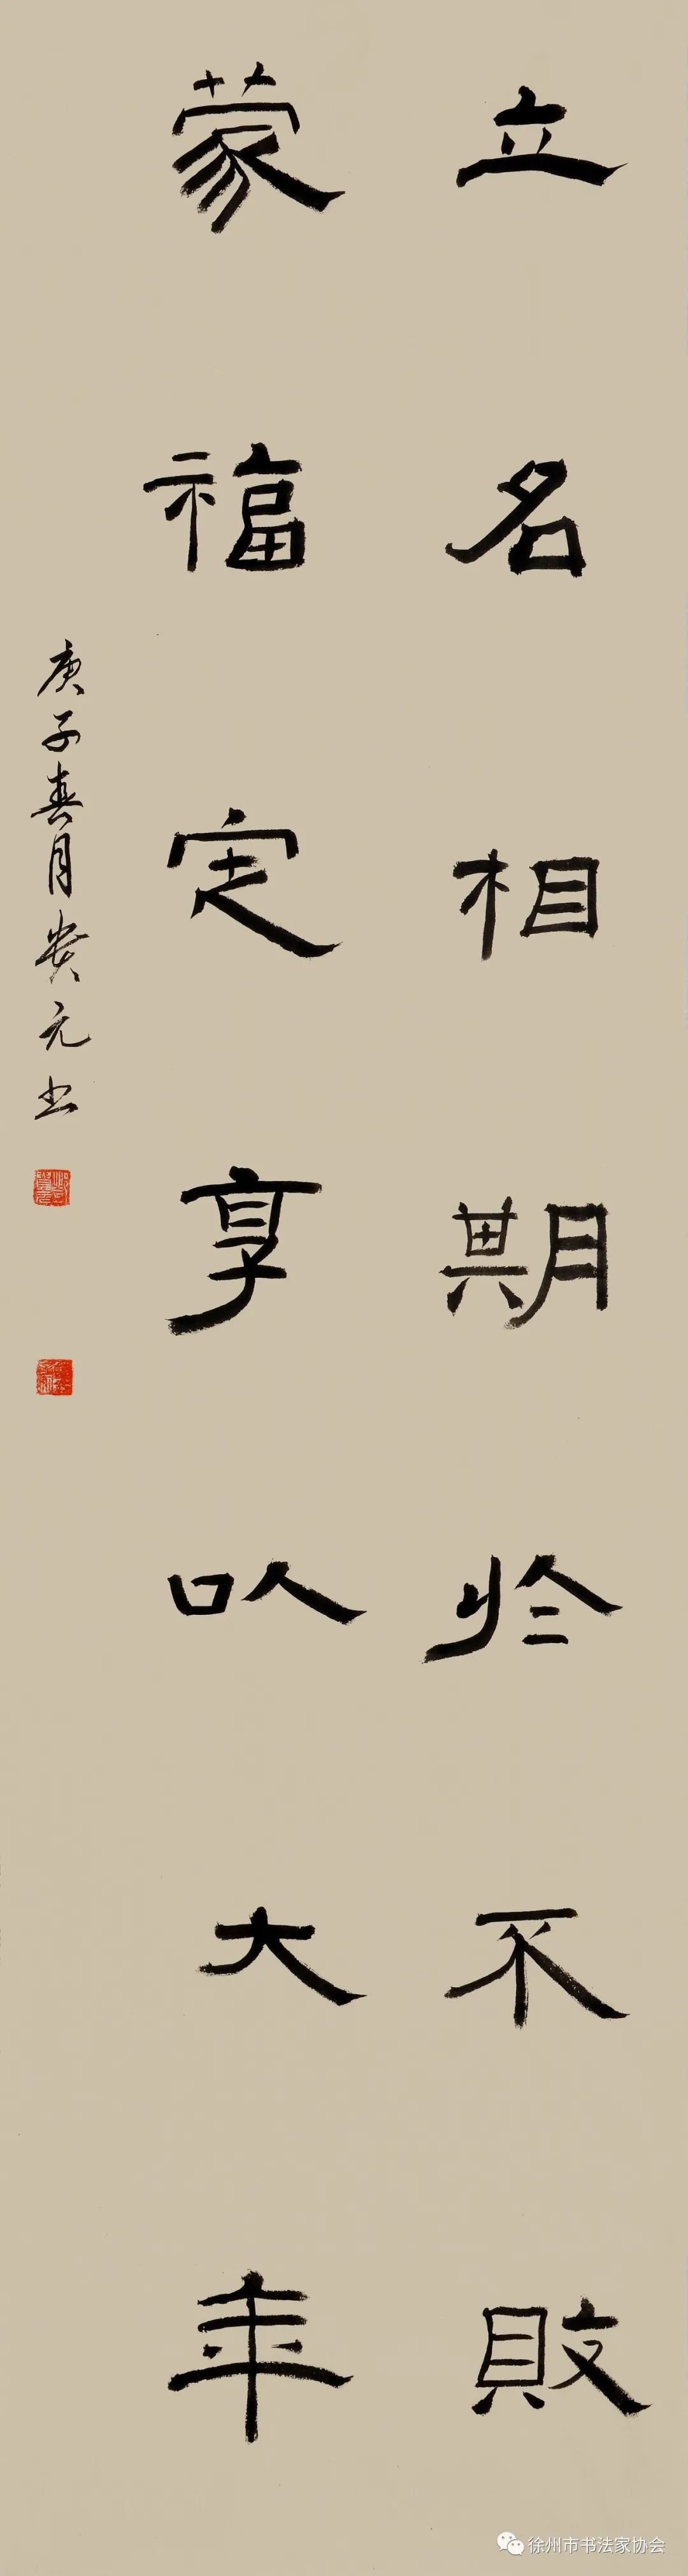 立名相期於不敗
蒙福定享以大年
庚子春月贵元书
徐州市书法家协会